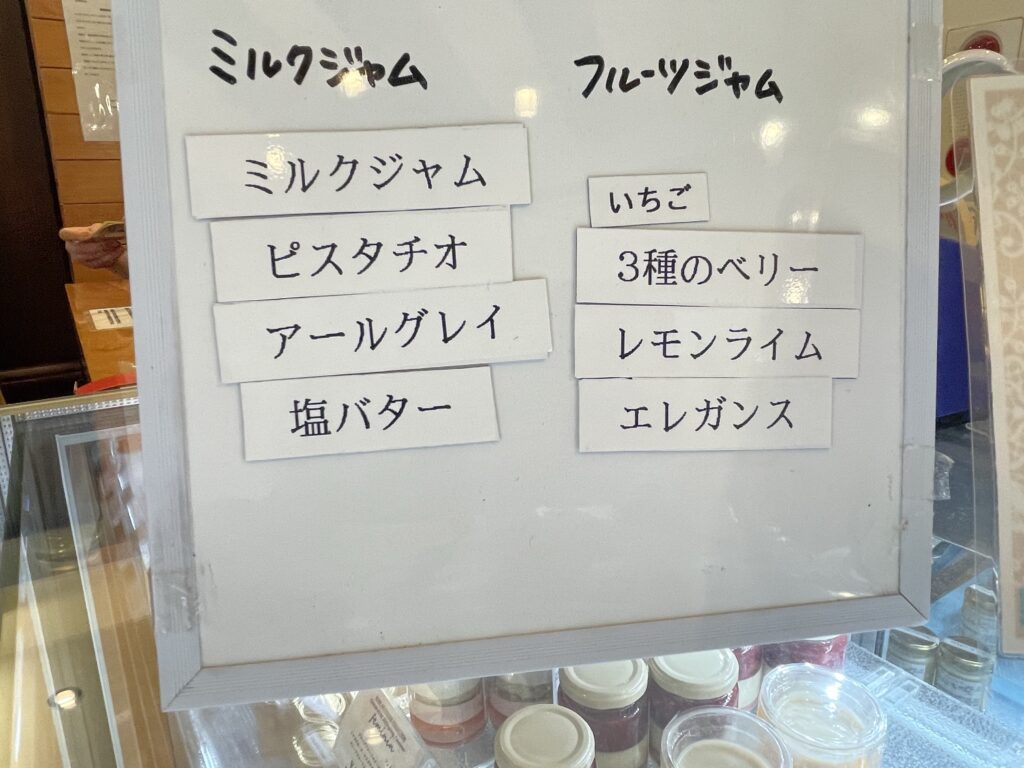 ミルクジャム
ミルクジャム
ピスタチオ
アールグレイ
塩バター
フルーツジャム
いちご
3種のベリー
レモンライム
エレガンス